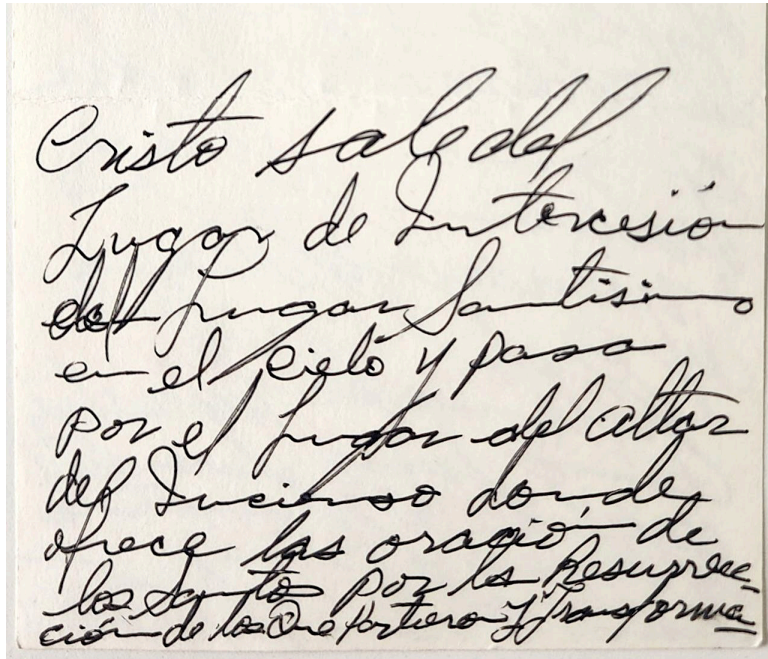 Cristo sale del
Lugar de Intercesión
del Lugar Santisimo
en el cielo y pasa
por el Lugar del altar
del Incienso donde
ofrece las oración de
los Santos por la Resurrec-
ción de los Que Partieron y Transforma